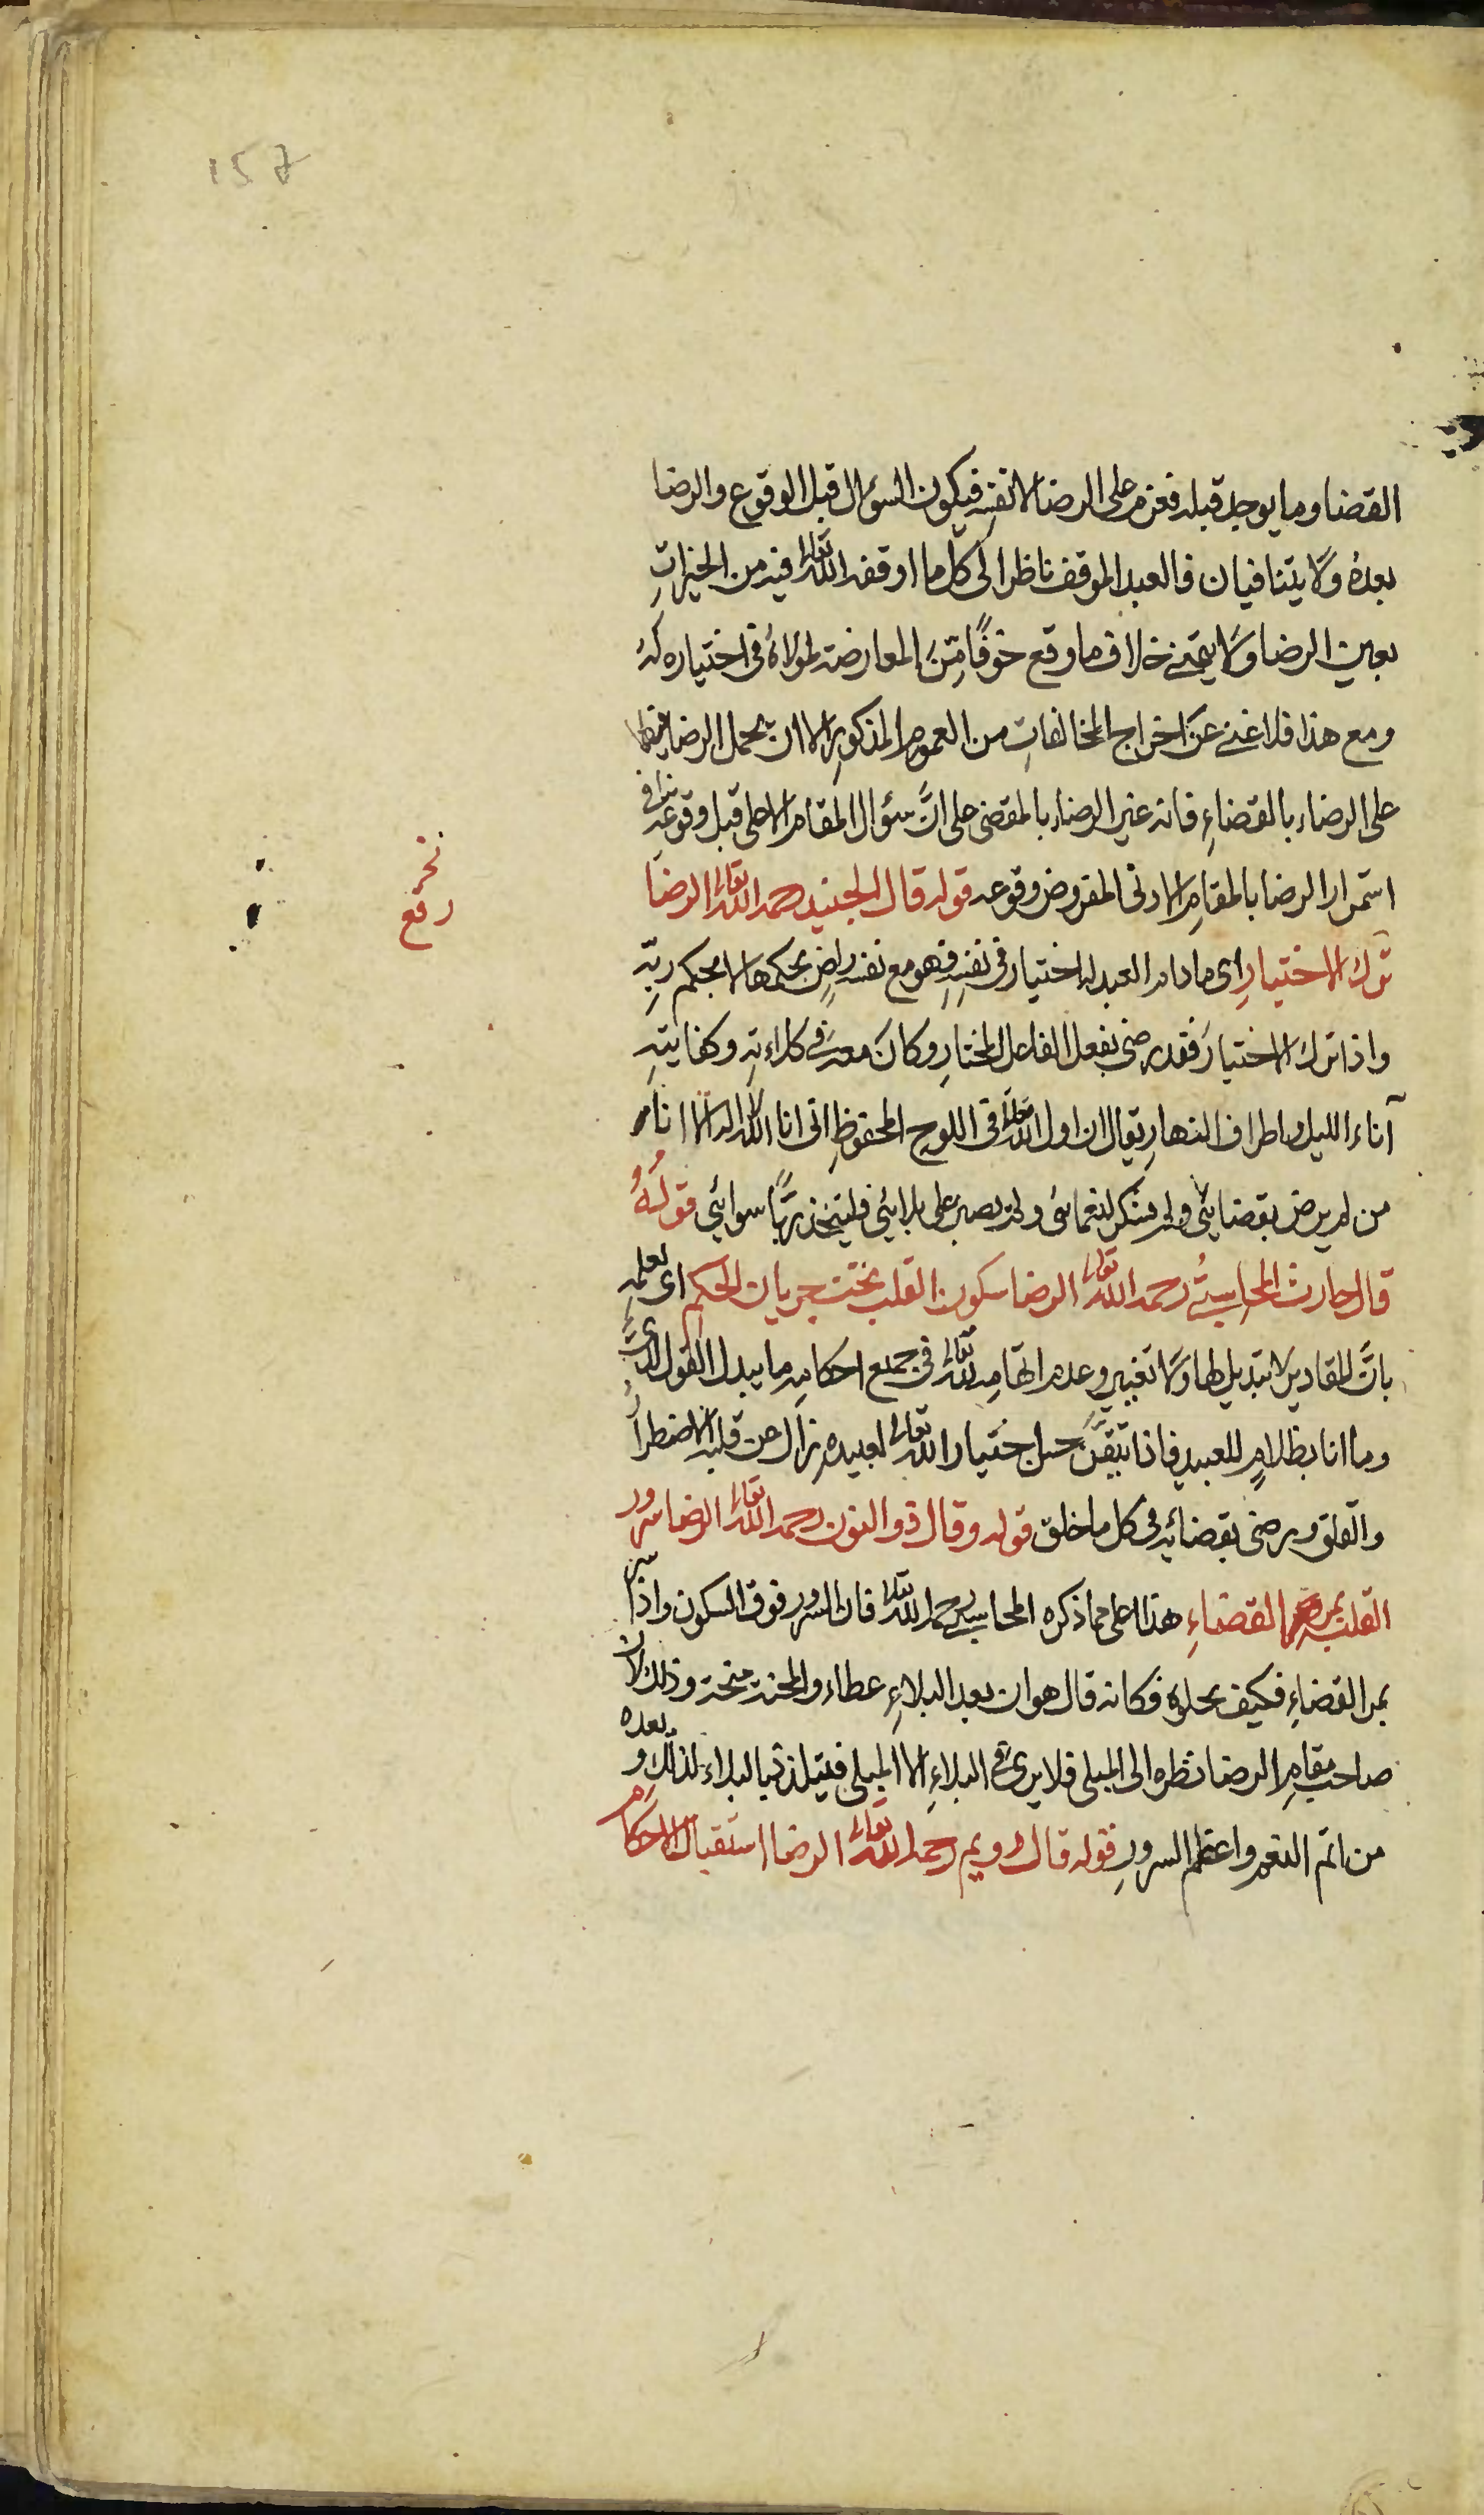 157
القضا وما يوجد قبله فعزم على الرضا لا نفسه فيكون السؤال قبل الوقوع والرضا
بعده ولا يتنافيان فالعبد الموقف ناظر الى كل ما اوقفه الله تعالى فيه من الخيراتِ
بعين الرضا ولا يتمنى خلاف ما وقع خوفًا مِنَ المعارضة لمولاهُ في اختياره لَهُ
ومع هذا فلا غنى عَن اخراج المخالفاتِ من العموم المذكورِ الا ان يحمل الرضا فيها
على الرضاء بالقضاءِ فانه غير الرضاء بالمقضى على انَّ سؤال المقام الاعلى قبل وقوعه ينافى
استمرار الرضا بالمقامِ الادنى المفروض وقوعه قوله قال الجنيد رحمه الله تعالى الرضَا
ترك الاختيارِ اى ما دام العبد له اختيار فى نفسِهِ فهو مع نفسه راضٍ بحكمها لا بحكم ربِّهِ
واذا ترك الاختيارَ فقد رضى بفعل الفاعل المختارِ وكانَ معه في كلاءتهِ وكفايتهِ
آناء الليل واطراف النهارِ يقال ان اول الله تعالى فى اللوح المحفوظِ انى انا الله لا اله الا انا
من لم يرض بقضائى ولم يشكر لنعمائى ولم يصبر على بلائى فليتخذ ربًّا سوائى قولُهُ
قال حارث المحاسبىُّ رحمه الله تعالى الرضا سكون القلب تحت جريان الحكم اى لعلمهِ
بانَّ المقادير لا تبديل لها ولا تغيير وعدم اتهامه لله تعالى فى جميع احكامهِ ما يبدل القول لدىَّ
وما انا بظلامٍ للعبيد فاذا تيقَّنَ حسن اختيار الله تعالى لعبيده زال عن قلبه الاضطرابُ
والقلق ورضى بقضائه فى كل ما خلق قوله وقال ذو النون رحمه الله تعالى الرضا سرور
القلب بمر القضاءِ هذا اعلى مما ذكره المحاسبى رحمه الله تعالى فان السرور فوق السكون واذا سر
بمر القضاءِ فكيف بحلوه فكانه قال هو ان يعد البلاءِ عطاء والمحنة منحة وذلك لان
صاحب مقامِ الرضا نظره الى المبلى فلا يرى فى البلاءِ الا المبلى فيتلذذ بالبلاء لذلك ويعده
من اتم النعم واعظم السرورِ قوله قال رويم رحمه الله تعالى الرضا استقبال الاحكام
رفع